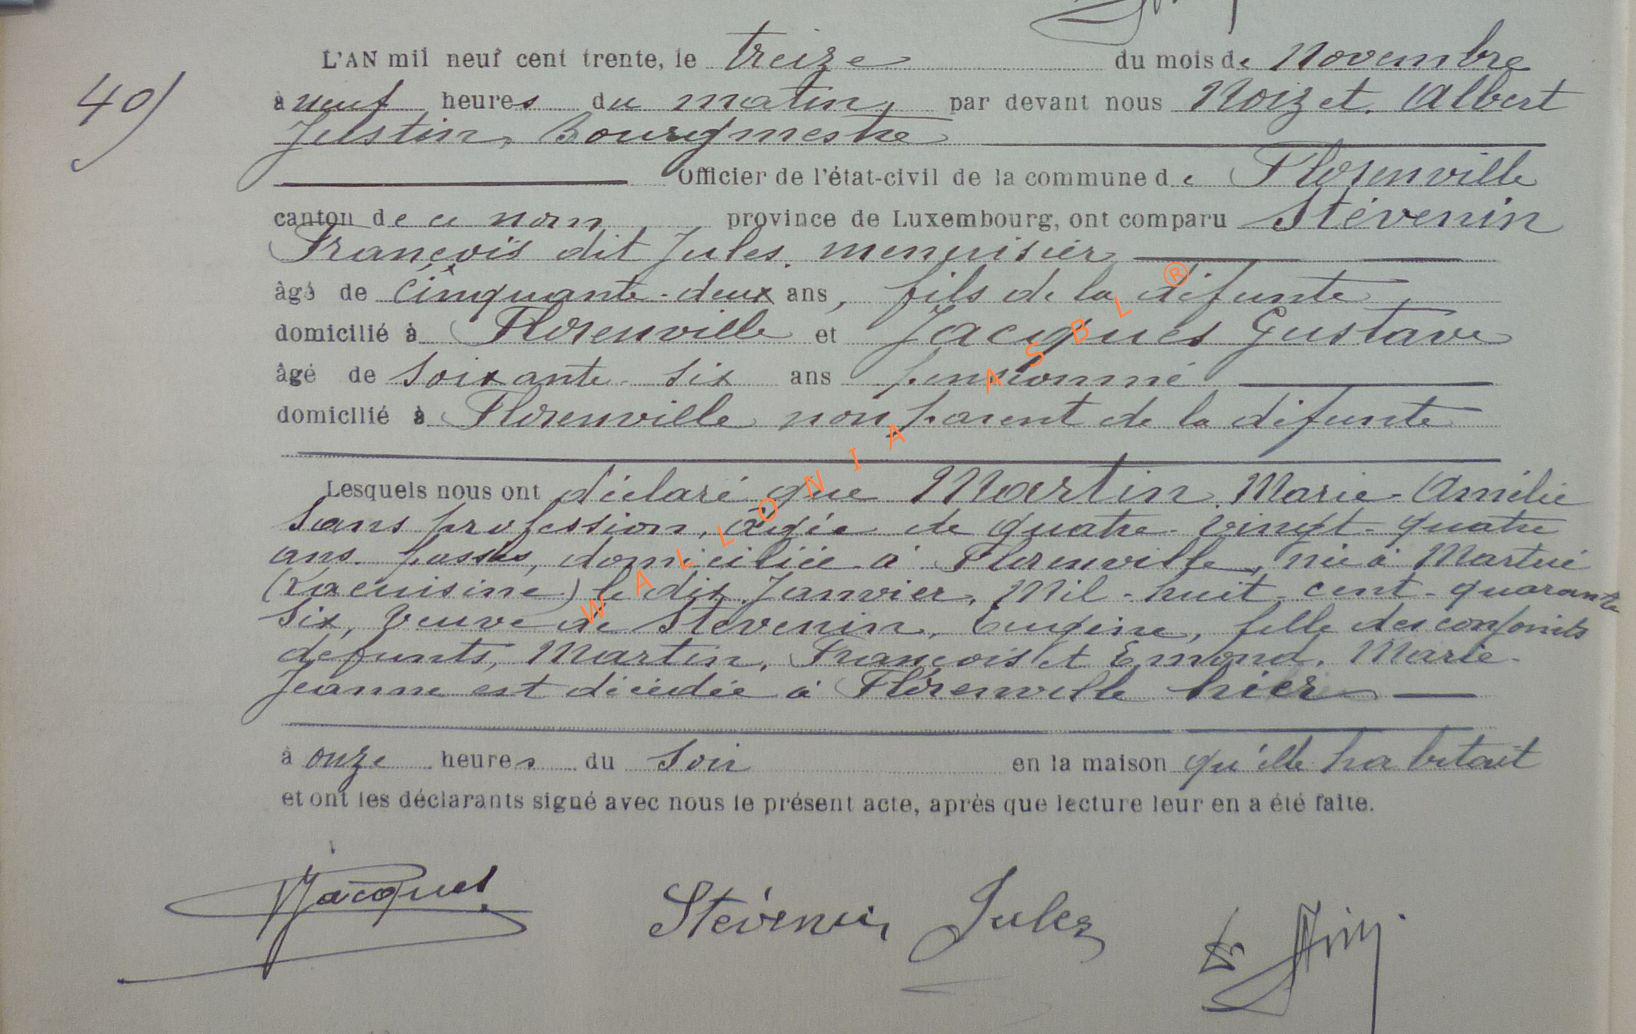 40)
L'AN mil neuf cent trente, le treize du mois de Novembre
à neuf heures du matin, par devant nous Noizet. Albert
Justin, Bourgmestre
Officier de l'état-civil de la commune de Florenville
canton de ce nom province de Luxembourg, ont comparu Stévenin
François dit Jules. menuisier
âgé de cinquante-deux ans, fils de la défunte
domicilié à Florenville et Jacques Gustave
âgé de soixante-six ans pensionné
domicilié à Florenville non parent de la défunte
Lesquels nous ont déclaré que Martin. Marie-Amélie
sans profession, âgée de quatre-vingt-quatre
ans passés, domiciliée à Florenville, née à Martué
(Lacuisine) le dix Janvier. Mil-huit-cent-quarante
six, veuve de Stévenin, Eugène, fille des conjoints
défunts, Martin, François et Emond. Marie-
Jeanne est décédée à Florenville hier
à onze heures du soir en la maison qu'elle habitait
et ont les déclarants signé avec nous le présent acte, après que lecture leur en a été faite.
Jacques
Stévenin Jules
WALLONIA ASBL ®